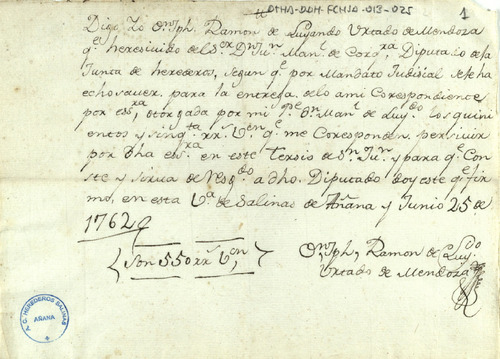 DTHA-DDH-FCHSA-013-025
1
Digo Yo Dn. Jph. Ramon de Luyando Urtado de Mendoza
qe. he resiuido del sor. Dn. Jun. Manl. de Corqra, Diputado de la
Junta de herederos, segun qe. por Mandato Judisial sele ha
echo sauer, para la entrega delo ami Corespondiente
por essra, otorgada por mi Dn. Manl. de Luydo. los quini
entos y sinqta. rrs. Von. qe. me Coresponden persiuir
por dha essra. en este tersio de Sn. Jun. y para qe. Con
ste y sirua de Resgdo. a dho. Diputado doy este qe. fir
mo, en esta Va. de Salinas de Añana y Junio 25 de
1762
Son 550 rrs. Von.
Dn. Jph. Ramon de Luydo.
Urtado de Mendoza
A. C. HEREDEROS SALINAS
AÑANA